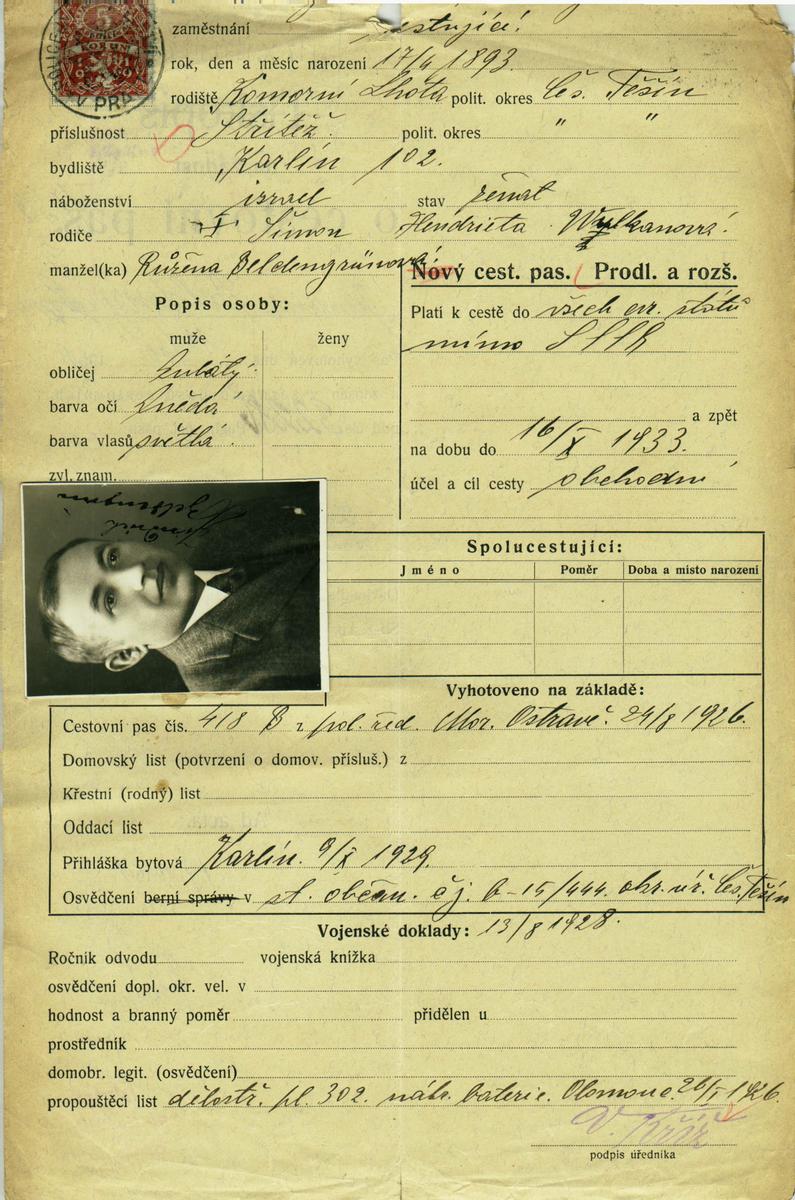 zaměstnání cestující.
rok, den a měsíc narození 17/4 1893.
rodiště Komorní Lhota polit. okres Čes. Těšín
příslušnost Střítěž. polit. okres " "
bydliště Karlín 102.
náboženství izrael stav ženat
rodiče Šimon Hendrieta Wulkanová.
manžel(ka) Růžena Beldengrünová.
Nový cest. pas. Prodl. a rozš.
Popis osoby:
muže ženy
obličej
barva očí hnědá
barva vlasů světlá.
zvl. znam.
Platí k cestě do všech evr. států
mimo SSSR
a zpět
na dobu do 16/X 1933.
účel a cíl cesty obchodní
Spolucestující:
Jméno Poměr Doba a místo narození
Vyhotoveno na základě:
Cestovní pas čís. 418 B z pol. řed. Mor. Ostravě. 24/8 1926.
Domovský list (potvrzení o domov. přísluš.) z
Křestní (rodný) list
Oddací list
Přihláška bytová Karlín. 9/X 1929.
Osvědčení berní správy v st. občan. čj. b-15/444. okr. úř. Čes. Těšín
Vojenské doklady: 13/8 1928.
Ročník odvodu vojenská knížka
osvědčení dopl. okr. vel. v
hodnost a branný poměr přidělen u
prostředník
domobr. legit. (osvědčení)
propouštěcí list dělostř. pl. 302. náhr. baterie. Olomouc. 26/I 1926.
podpis úředníka